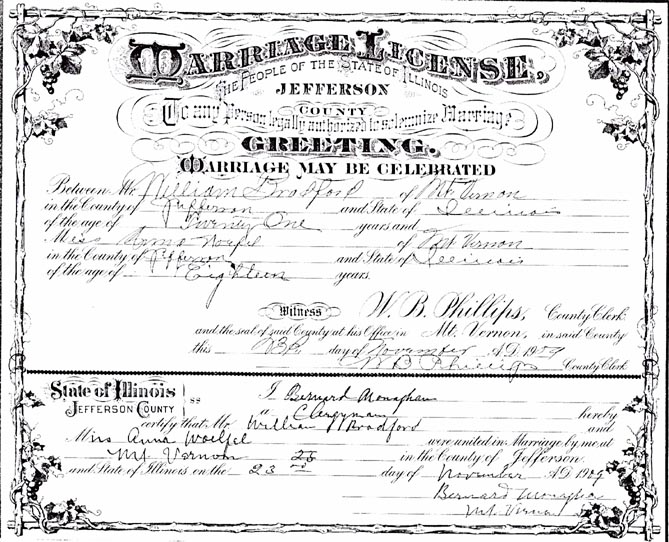 MARRIAGE LICENSE,
THE PEOPLE OF THE STATE OF ILLINOIS
JEFFERSON
COUNTY
To any Person legally authorized to solemnize Marriage
GREETING.
MARRIAGE MAY BE CELEBRATED
Between Mr. William Bradford of Mt. Vernon
in the County of Jefferson and State of Illinois
of the age of Twenty One years and
Miss Anna Woefel of Mt. Vernon
in the County of Jefferson and State of Illinois
of the age of Eighteen years.
Witness W. B. Phillips, County Clerk
and the seal of said County at his Office in Mt. Vernon, in said County
this 23rd day of November A.D. 1909
W B Phillips County Clerk
State of Illinois
JEFFERSON COUNTY
ss
I Bernard Monaghan
a Clergyman hereby
certify that Mr. William Bradford and
Miss Anna Woelfel were united in Marriage by me at
Mt. Vernon 23 in the County of Jefferson
and State of Illinois, on the 23rd day of November A.D. 1909
Bernard Monaghan
Mt. Vernon